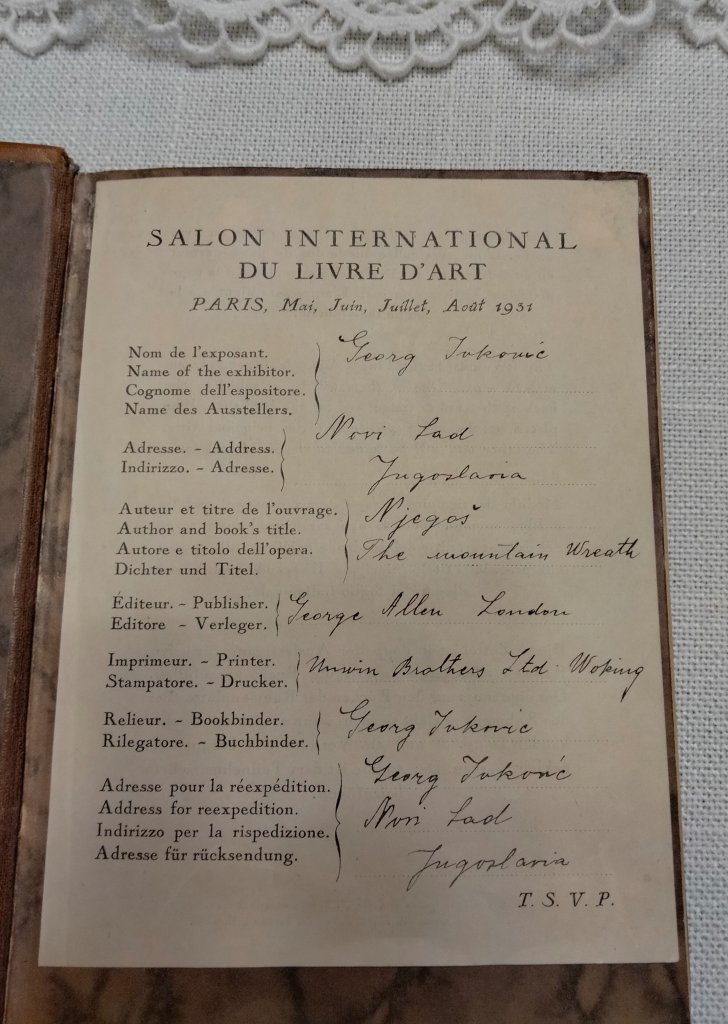 SALON INTERNATIONAL
DU LIVRE D'ART
PARIS, Mai, Juin, Juillet, Août 1931
Nom de l'exposant.
Name of the exhibitor.
Cognome dell'espositore.
Name des Ausstellers.
Georg Ivković
Adresse. - Address.
Indirizzo. - Adresse.
Novi Sad
Jugoslavia
Auteur et titre de l'ouvrage.
Author and book's title.
Autore e titolo dell'opera.
Dichter und Titel.
Njegoš
The mountain Wreath
Éditeur. - Publisher.
Editore - Verleger.
George Allen London
Imprimeur. - Printer.
Stampatore. - Drucker.
Unwin Brothers Ltd. Woking
Relieur. - Bookbinder.
Rilegatore. - Buchbinder.
Georg Ivkovic
Adresse pour la réexpédition.
Address for reexpedition.
Indirizzo per la rispedizione.
Adresse für rücksendung.
Georg Ivković
Novi Sad
Jugoslavia
T. S. V. P.